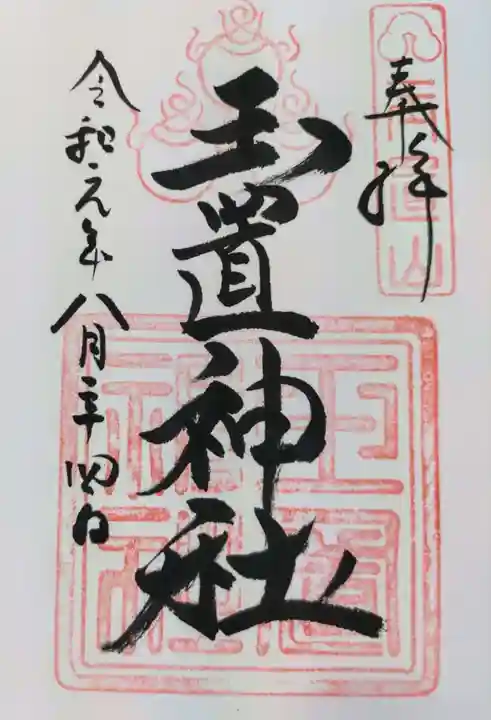 奉拝
玉置山
玉置神社
玉置神社
令和元年八月二十四日